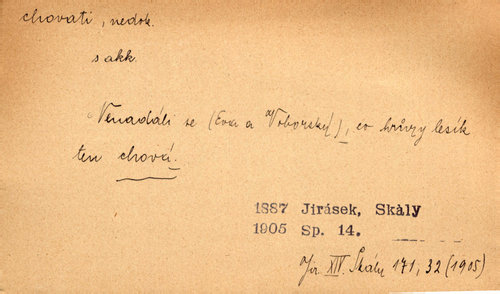 chovati, nedok.
s akk.
Nenadáli se (Eva a Voborský), co hrůzy lesík
ten chová.
1887 Jirásek, Skàly
1905 Sp. 14.
Jir. XIV. Skály 171, 32 (1905)